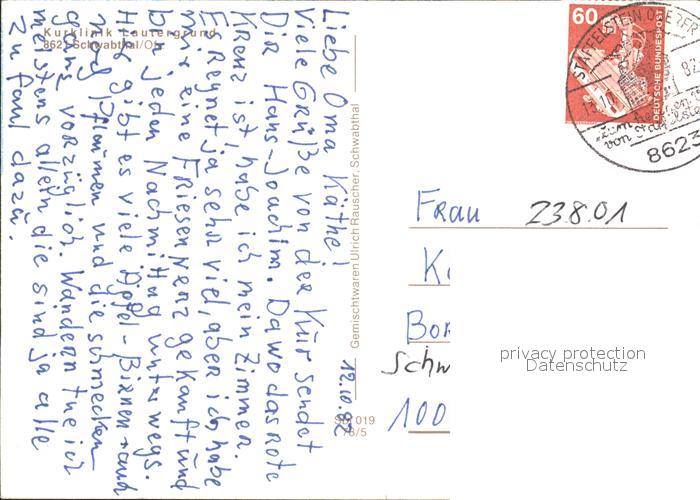 Kurklinik Lautergrund
8621 Schwabthal/Ofr.
12.10.82
Liebe Oma Käthe!
Viele Grüße von der Kur sendet
Dir Hans-Joachim. Da wo das rote
Kreuz ist, habe ich mein Zimmer.
Es regnet ja sehr viel, aber ich habe
mir eine Friesennerz gekauft und
bin jeden Nachmittag unterwegs.
Hier gibt es viele Äpfel - Birnen - auch
Pflaumen und die schmecken
ganz vorzüglich. Wandern tue ich
meistens allein die sind ja alle
zu faul dazu.
Gemischtwaren Ulrich Rauscher, Schwabthal
019
78/5
60
DEUTSCHE BUNDESPOST
STAFFELSTEIN, OBERFR
82
von Staffelstein
8623
Frau 238.01
K
Bor
Schw
100
privacy protection
Datenschutz